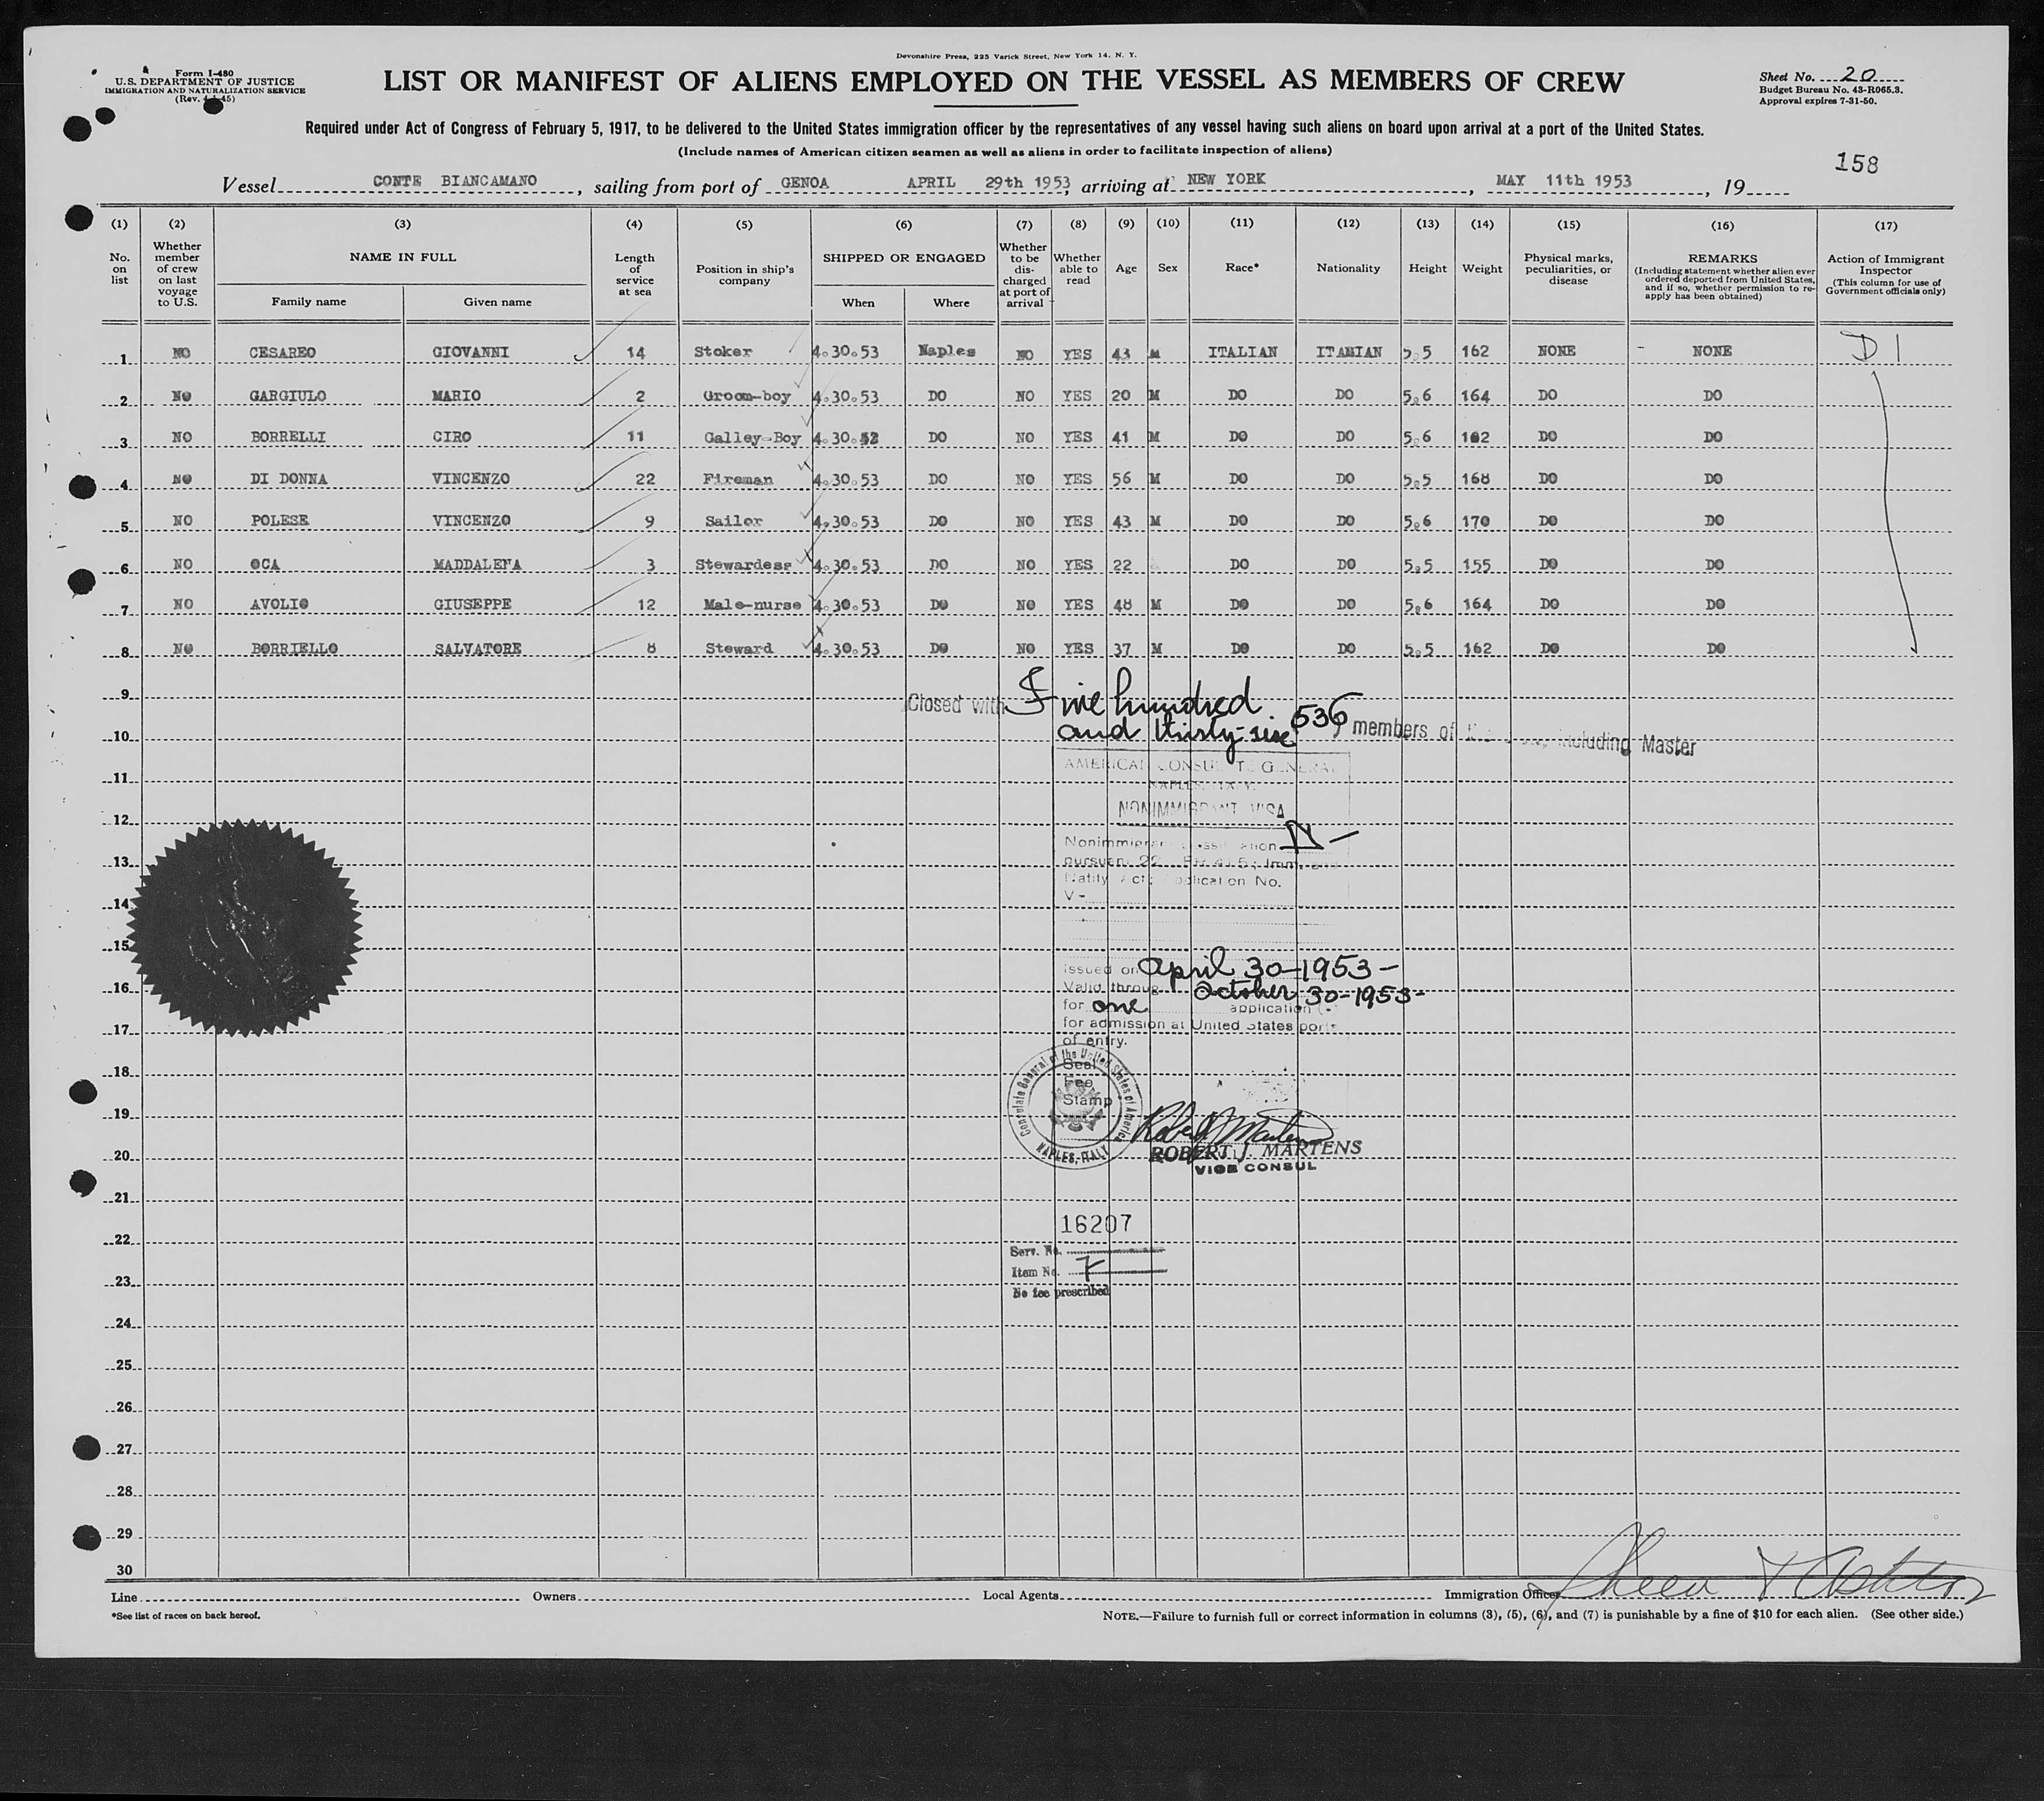 Devonshire Press, 225 Varick Street, New York 14, N. Y.
Form I-480
U.S. DEPARTMENT OF JUSTICE
IMMIGRATION AND NATURALIZATION SERVICE
(Rev. 4-1-45)
LIST OR MANIFEST OF ALIENS EMPLOYED ON THE VESSEL AS MEMBERS OF CREW
Sheet No. 20
Budget Bureau No. 43-R065.3.
Approval expires 7-31-50.
Required under Act of Congress of February 5, 1917, to be delivered to the United States immigration officer by the representatives of any vessel having such aliens on board upon arrival at a port of the United States.
(Include names of American citizen seamen as well as aliens in order to facilitate inspection of aliens)
158
Vessel CONTE BIANCAMANO, sailing from port of GENOA APRIL 29th 1953, arriving at NEW YORK, MAY 11th 1953, 19
(1) (2) (3) (4) (5) (6) (7) (8) (9) (10) (11) (12) (13) (14) (15) (16) (17)
No. on list
Whether member of crew on last voyage to U.S.
NAME IN FULL
Family name
Given name
Length of service at sea
Position in ship's company
SHIPPED OR ENGAGED
When
Where
Whether to be discharged at port of arrival
Whether able to read
Age
Sex
Race*
Nationality
Height
Weight
Physical marks, peculiarities, or disease
REMARKS
(Including statement whether alien ever ordered deported from United States, and if so, whether permission to reapply has been obtained)
Action of Immigrant Inspector
(This column for use of Government officials only)
1 NO CESAREO GIOVANNI 14 Stoker 4.30.53 Naples NO YES 43 M ITALIAN ITALIAN 5.5 162 NONE - NONE D 1
2 NO GARGIULO MARIO 2 Groom-boy 4.30.53 DO NO YES 20 M DO DO 5.6 164 DO DO
3 NO BORRELLI CIRO 11 Galley-Boy 4.30.52 DO NO YES 41 M DO DO 5.6 162 DO DO
4 NO DI DONNA VINCENZO 22 Fireman 4.30.53 DO NO YES 56 M DO DO 5.5 168 DO DO
5 NO POLESE VINCENZO 9 Sailor 4.30.53 DO NO YES 43 M DO DO 5.6 170 DO DO
6 NO OCA MADDALENA 3 Stewardess 4.30.53 DO NO YES 22 DO DO 5.5 155 DO DO
7 NO AVOLIO GIUSEPPE 12 Male-nurse 4.30.53 DO NO YES 48 M DO DO 5.6 164 DO DO
8 NO BORRIELLO SALVATORE 8 Steward 4.30.53 DO NO YES 37 M DO DO 5.5 162 DO DO
9
Closed with Five hundred
10
and thirty-six 536 members of including Master
AMERICAN CONSULATE GENERAL
11
NAPLES, ITALY
NONIMMIGRANT VISA
12
Nonimmigrant classification D -
13
pursuant 22
Natlty Act; Application No.
14
V-
15
Issued on April 30-1953-
16
Valid through October 30-1953-
for one application
17
for admission at United States ports
of entry.
18
Seal
Fee
19
Stamp
Consulate General of the United States of America
NAPLES, ITALY
20
ROBERT J. MARTENS
VICE CONSUL
21
22
16207
Serv. No.
Item No. 7
23
No fee prescribed
24
25
26
27
28
29
30
Line Owners Local Agents Immigration Officer
*See list of races on back hereof.
NOTE.—Failure to furnish full or correct information in columns (3), (5), (6), and (7) is punishable by a fine of $10 for each alien. (See other side.)